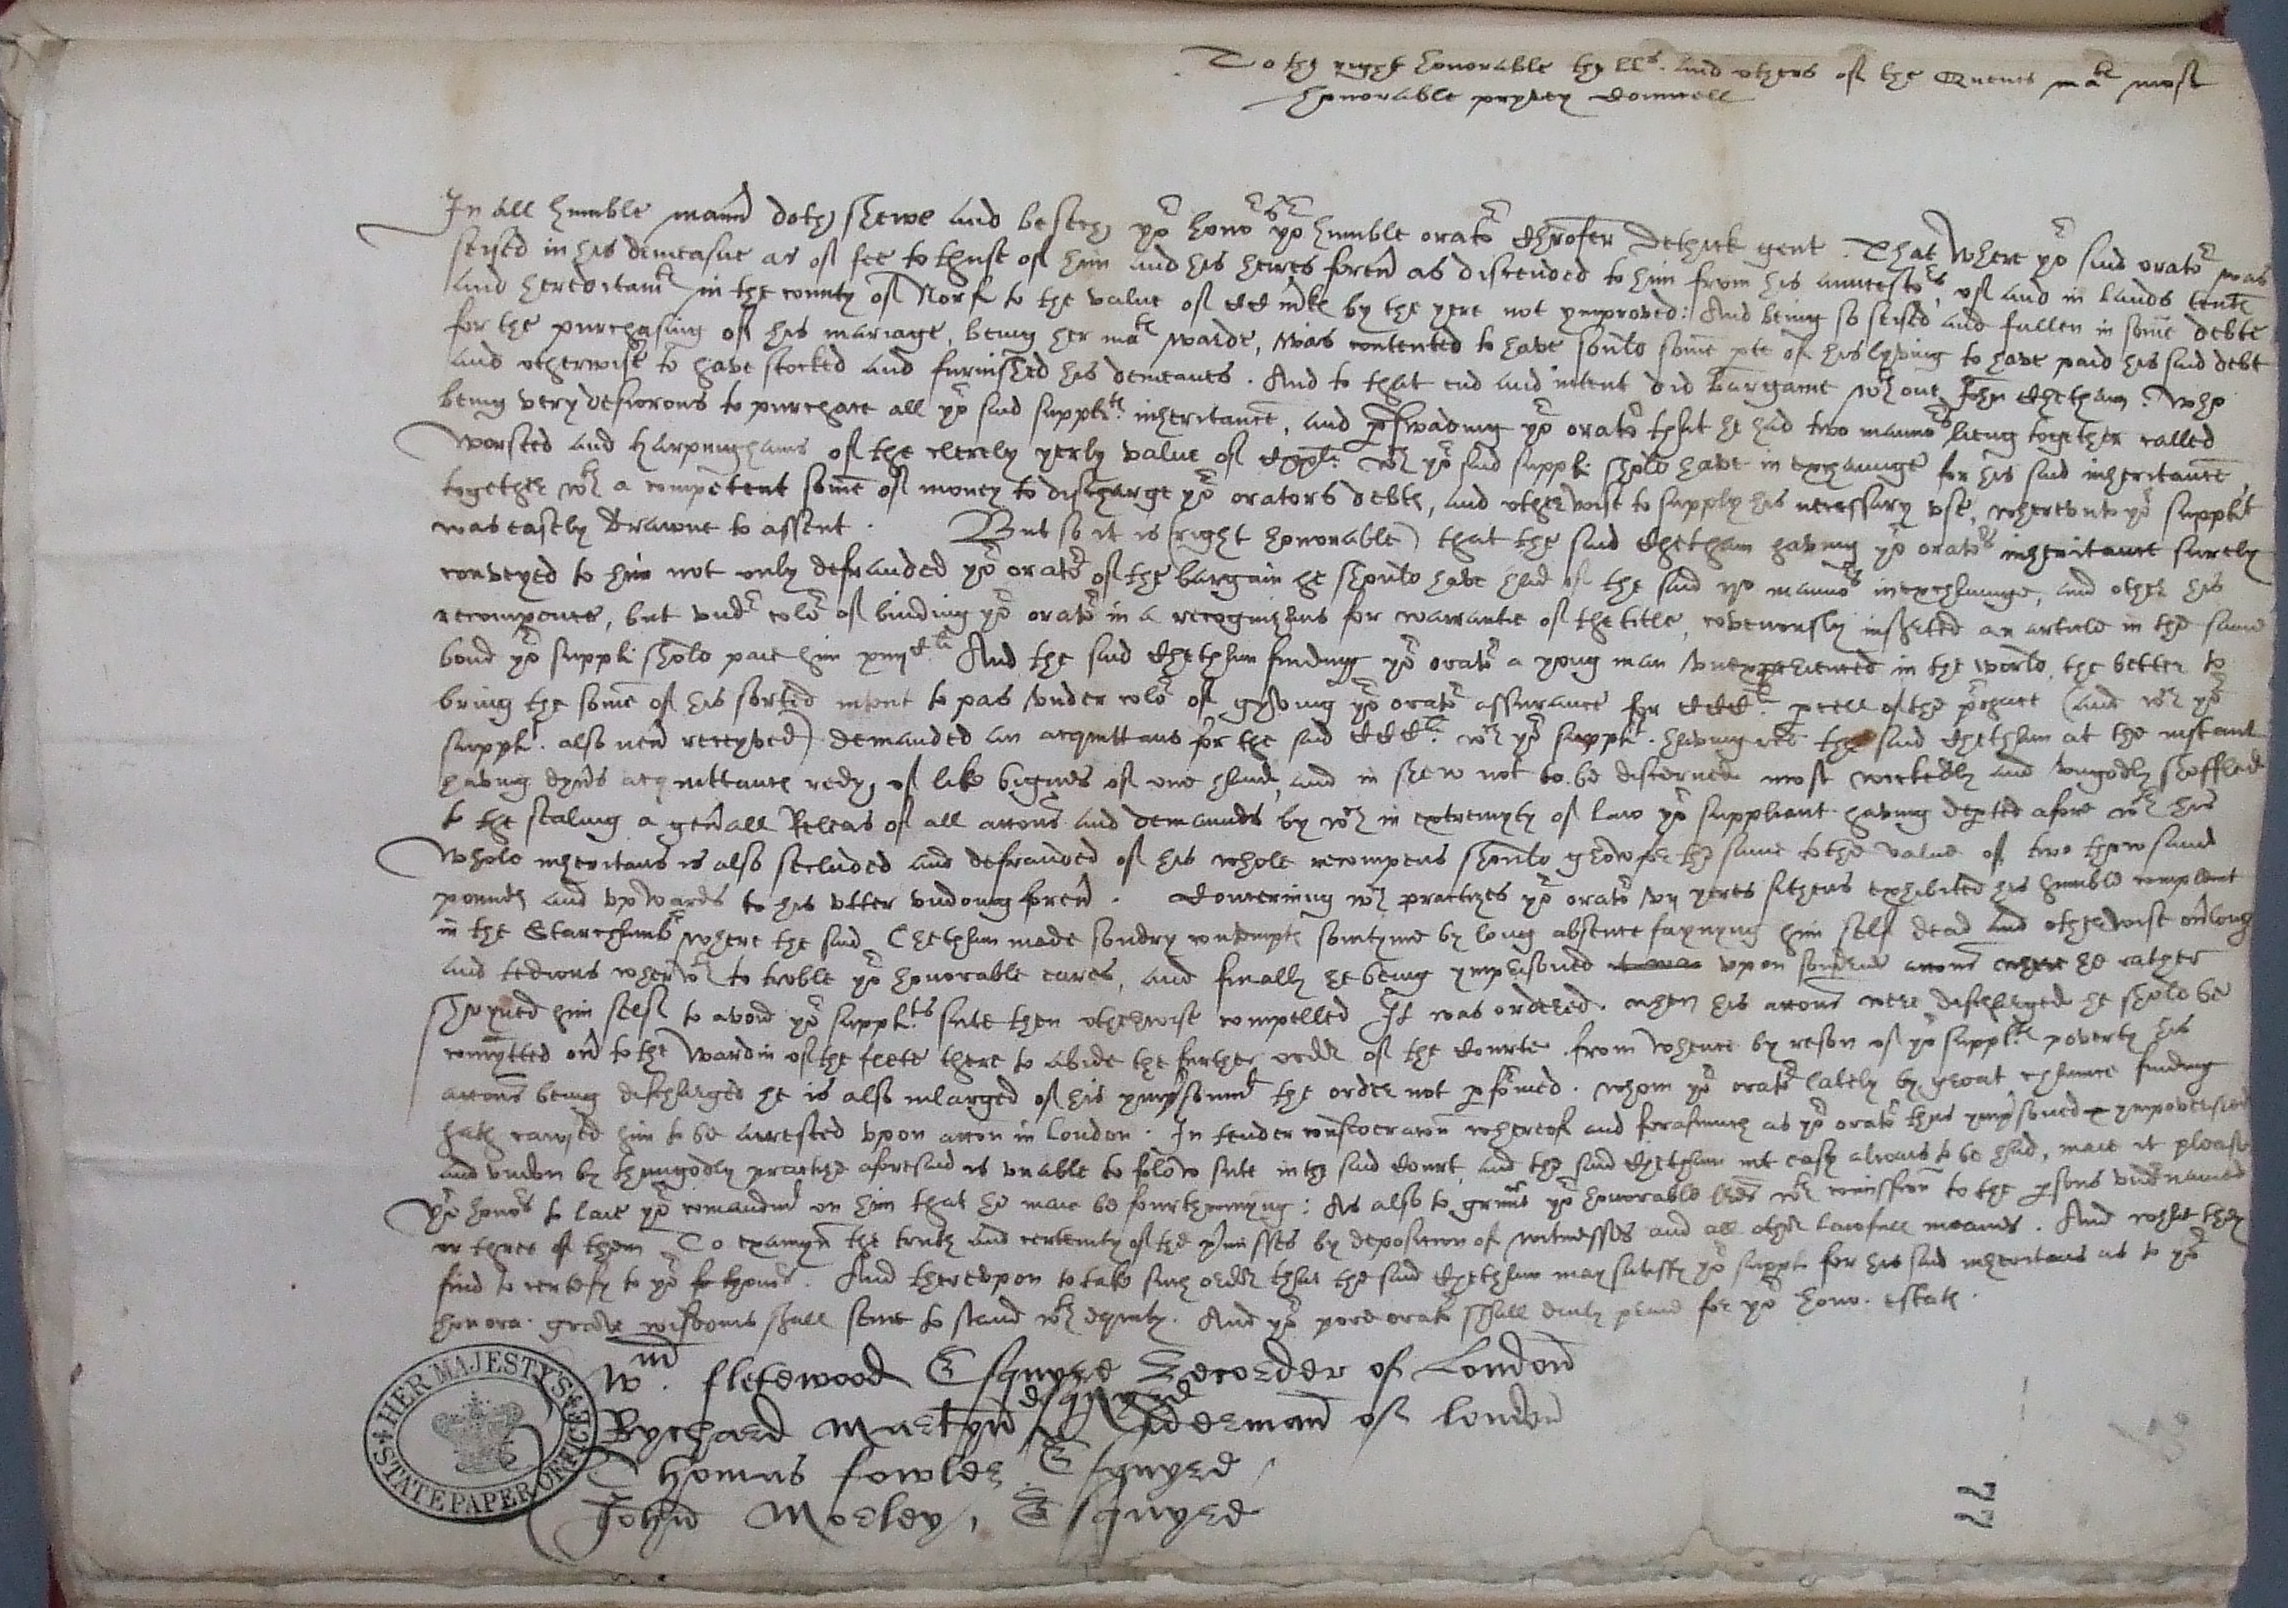 To the right honorable the LLs. and others of the Quenes matie most
honorable pryvey Counsell
In all humble mannr doth shewe and besech yor honors yor humble orator Chrofer Dethick gent. That where yor said orator was
seised in his demeasne as of fee to thuse of him and his heires forevr as discended to him from his auncestors, of and in lands tentes
and hereditamtes in the county of Norf to the value of CC mkes by the yere not ymproved: And being so seised and fallen in some debte
for the purchasing of his mariage, being her maties warde, was contented to have sould some pte of his lyving to have paid his said debt
and otherwise to have stocked and furnished his demeanes. And to that end and intent did bargaine wth one John Chetham. Who
being very desierous to purchace all yor said supplts inheritance, and pswading yor orator that he had two mannors lieng together called
Worsted and Harpinghams of the clerely yerly value of Cxxli. wch yor said supplt shold have in exchaunge for his said inheritance
together wth a competent some of money to discharge yor orators debts, and otherwise to supply his necessary use, wherevnto yor supplt
was easely drawne to assent. But so it is (right honorable) that the said Chetham having yor orators inheritance surely
conveyed to him not only defrauded yor orator of the bargain he should have had of the said ii mannors in exchaunge, and other his
recompence, but undr color of binding yor orator in a recognizans for warrantie of the title, coveneusly inserted an article in the same
bond yor supplt shold paie him xiiijCli. And the said Chetham finding yor orator a yong man unexperienced in the world, the better to
bring the some of his sorted intent to pas under color of gyving yor orator assurance for CCCli. pcell of the pchace (and wch yor
supplt. also nevr receyved) demanded an acquittans for the said CCCli. wch yor supplt. having red the said Chetham at the instant
having acquittance redy, of like bignes of one hand, and in shew not to be discerned most wickedly and ungodly shoffled
to the sealing a genrall Releas of all accons and demaunds by wch in extremyty of law yor suppliant having depted afore wth his
whole inheritans is also secluded and defrauded of his whole recompens should growe for the same to the value of two thowsand
pounds and upwards to his utter undoing forevr. Concerning wch practizes yor orator vij yeres sithens exhibited his humble complaint
in the Starchambr where the said Chetham made sondry contempts somtyme by long absence faynyng him self dead and otherwise ovrlong
and tedious wherwth to troble yor honorable eares, and finally he being ymprisoned upon sondrie accons where he rather
shryned him self to avoid yor supplts sute then otherwise compelled It was ordered. when his accons were discharged he shold be
comytted ovr to the Wardin of the fleete there to abide the further ordr of the Courte. from whence by reson of yor supplts poverty his
accons being discharged he is also inlarged of his ymprisonmt the order not pformed. whom yor orator lately by great chaunce finding
hath cawsed him to be arrested upon accon in London. In tender consideracon whereof and forasmuch as yor orator thus ymprisoned & ympoverished
and undon by thungodly practize aforesaid is unable to folow sute in the said Court, and the said Chetham not easy alwais to be had, maie it please
yor honors to laie yor comaundmt on him that he maie be fourthcomyng: As also to graunt yor honorable lres wth comission to the psons undrnamed
or three of them To examyn the truth and certeinty of the pmisses by deposicion of witnesses and all other lawfull meanes. And what they
find to certefy to yor honors. And therevpon to take such ordr that the said Chetham may satisfy yor supplt for his said inheritans as to yor
honora. grave wisdoms shall seme to stand wth equity. And yor pore orator shall daily praie for yor hono. estate.
Wm. fletewood Esquyre Recorder of London
esquyre
Rychard Martyn Alderman of london
Thomas fowler Esquyre
John Morley, Esquyre
HER MAJESTY'S STATE PAPER OFFICE
77